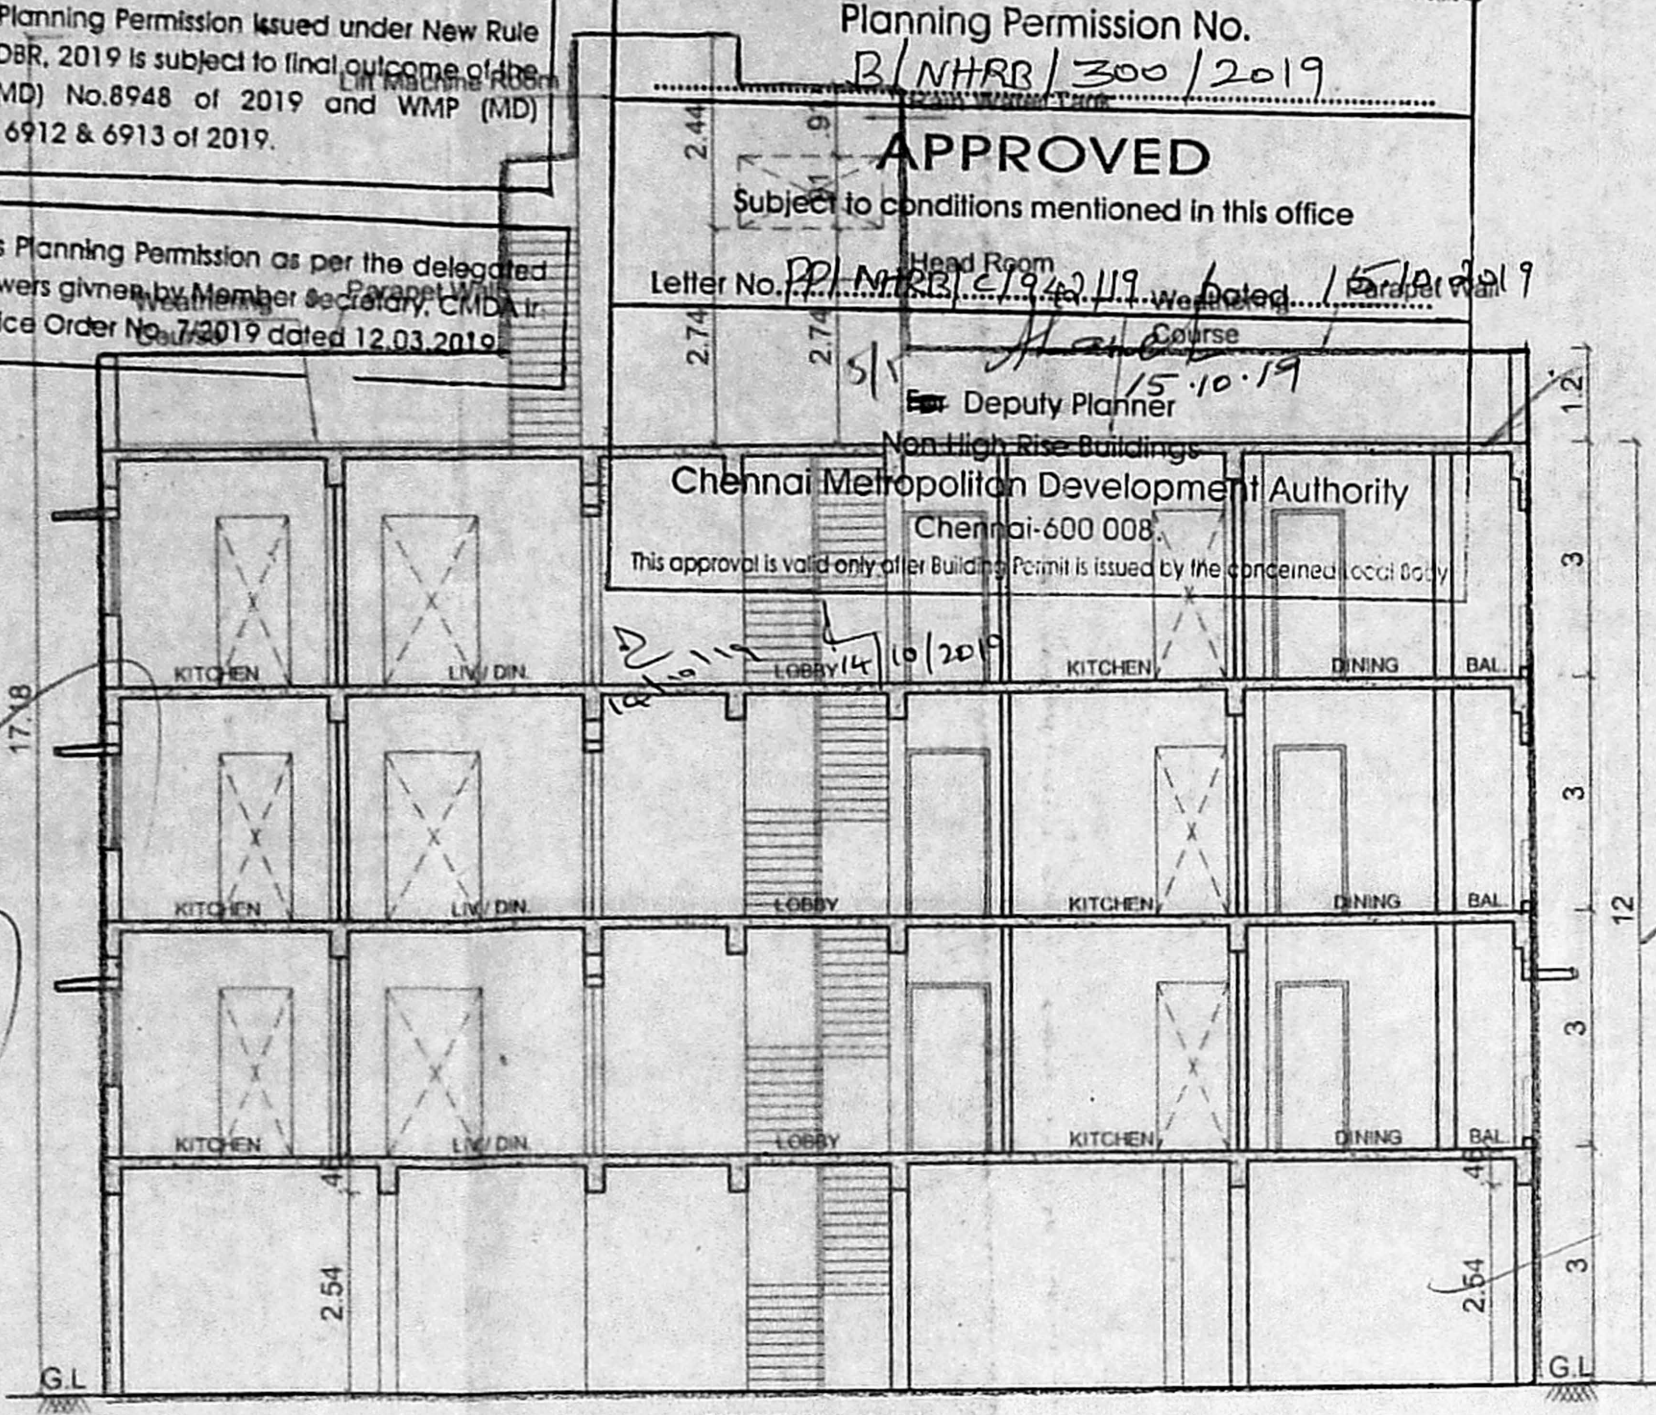 Planning Permission Issued under New Rule
DBR, 2019 is subject to final outcome of the
MD) No.8948 of 2019 and WMP (MD)
6912 & 6913 of 2019.
Lift Machine Room
s Planning Permission as per the delegated
wers givnen by Member Secretary, CMDA in
ice Order No. 7/2019 dated 12.03.2019
Weathering
Course
Parapet Wall
Planning Permission No.
B/NHRB/300/2019
Rain Water Tank
APPROVED
Subject to conditions mentioned in this office
Head Room
Letter No. PP/NHRB/C/942/19 Dated 15.10.2019
Weathering
Course
Parapet Wall
15.10.19
For Deputy Planner
Non High Rise Buildings
Chennai Metropolitan Development Authority
Chennai-600 008.
This approval is valid only after Building Permit is issued by the concerned Local Body
2.44
.91
2.74
2.74
1.2
14/10/2019
KITCHEN LIV/ DIN. LOBBY KITCHEN DINING BAL.
3
17.18
KITCHEN LIV/ DIN. LOBBY KITCHEN DINING BAL.
3
12
KITCHEN LIV/ DIN. LOBBY KITCHEN DINING BAL.
3
2.54
2.54
3
G.L
G.L